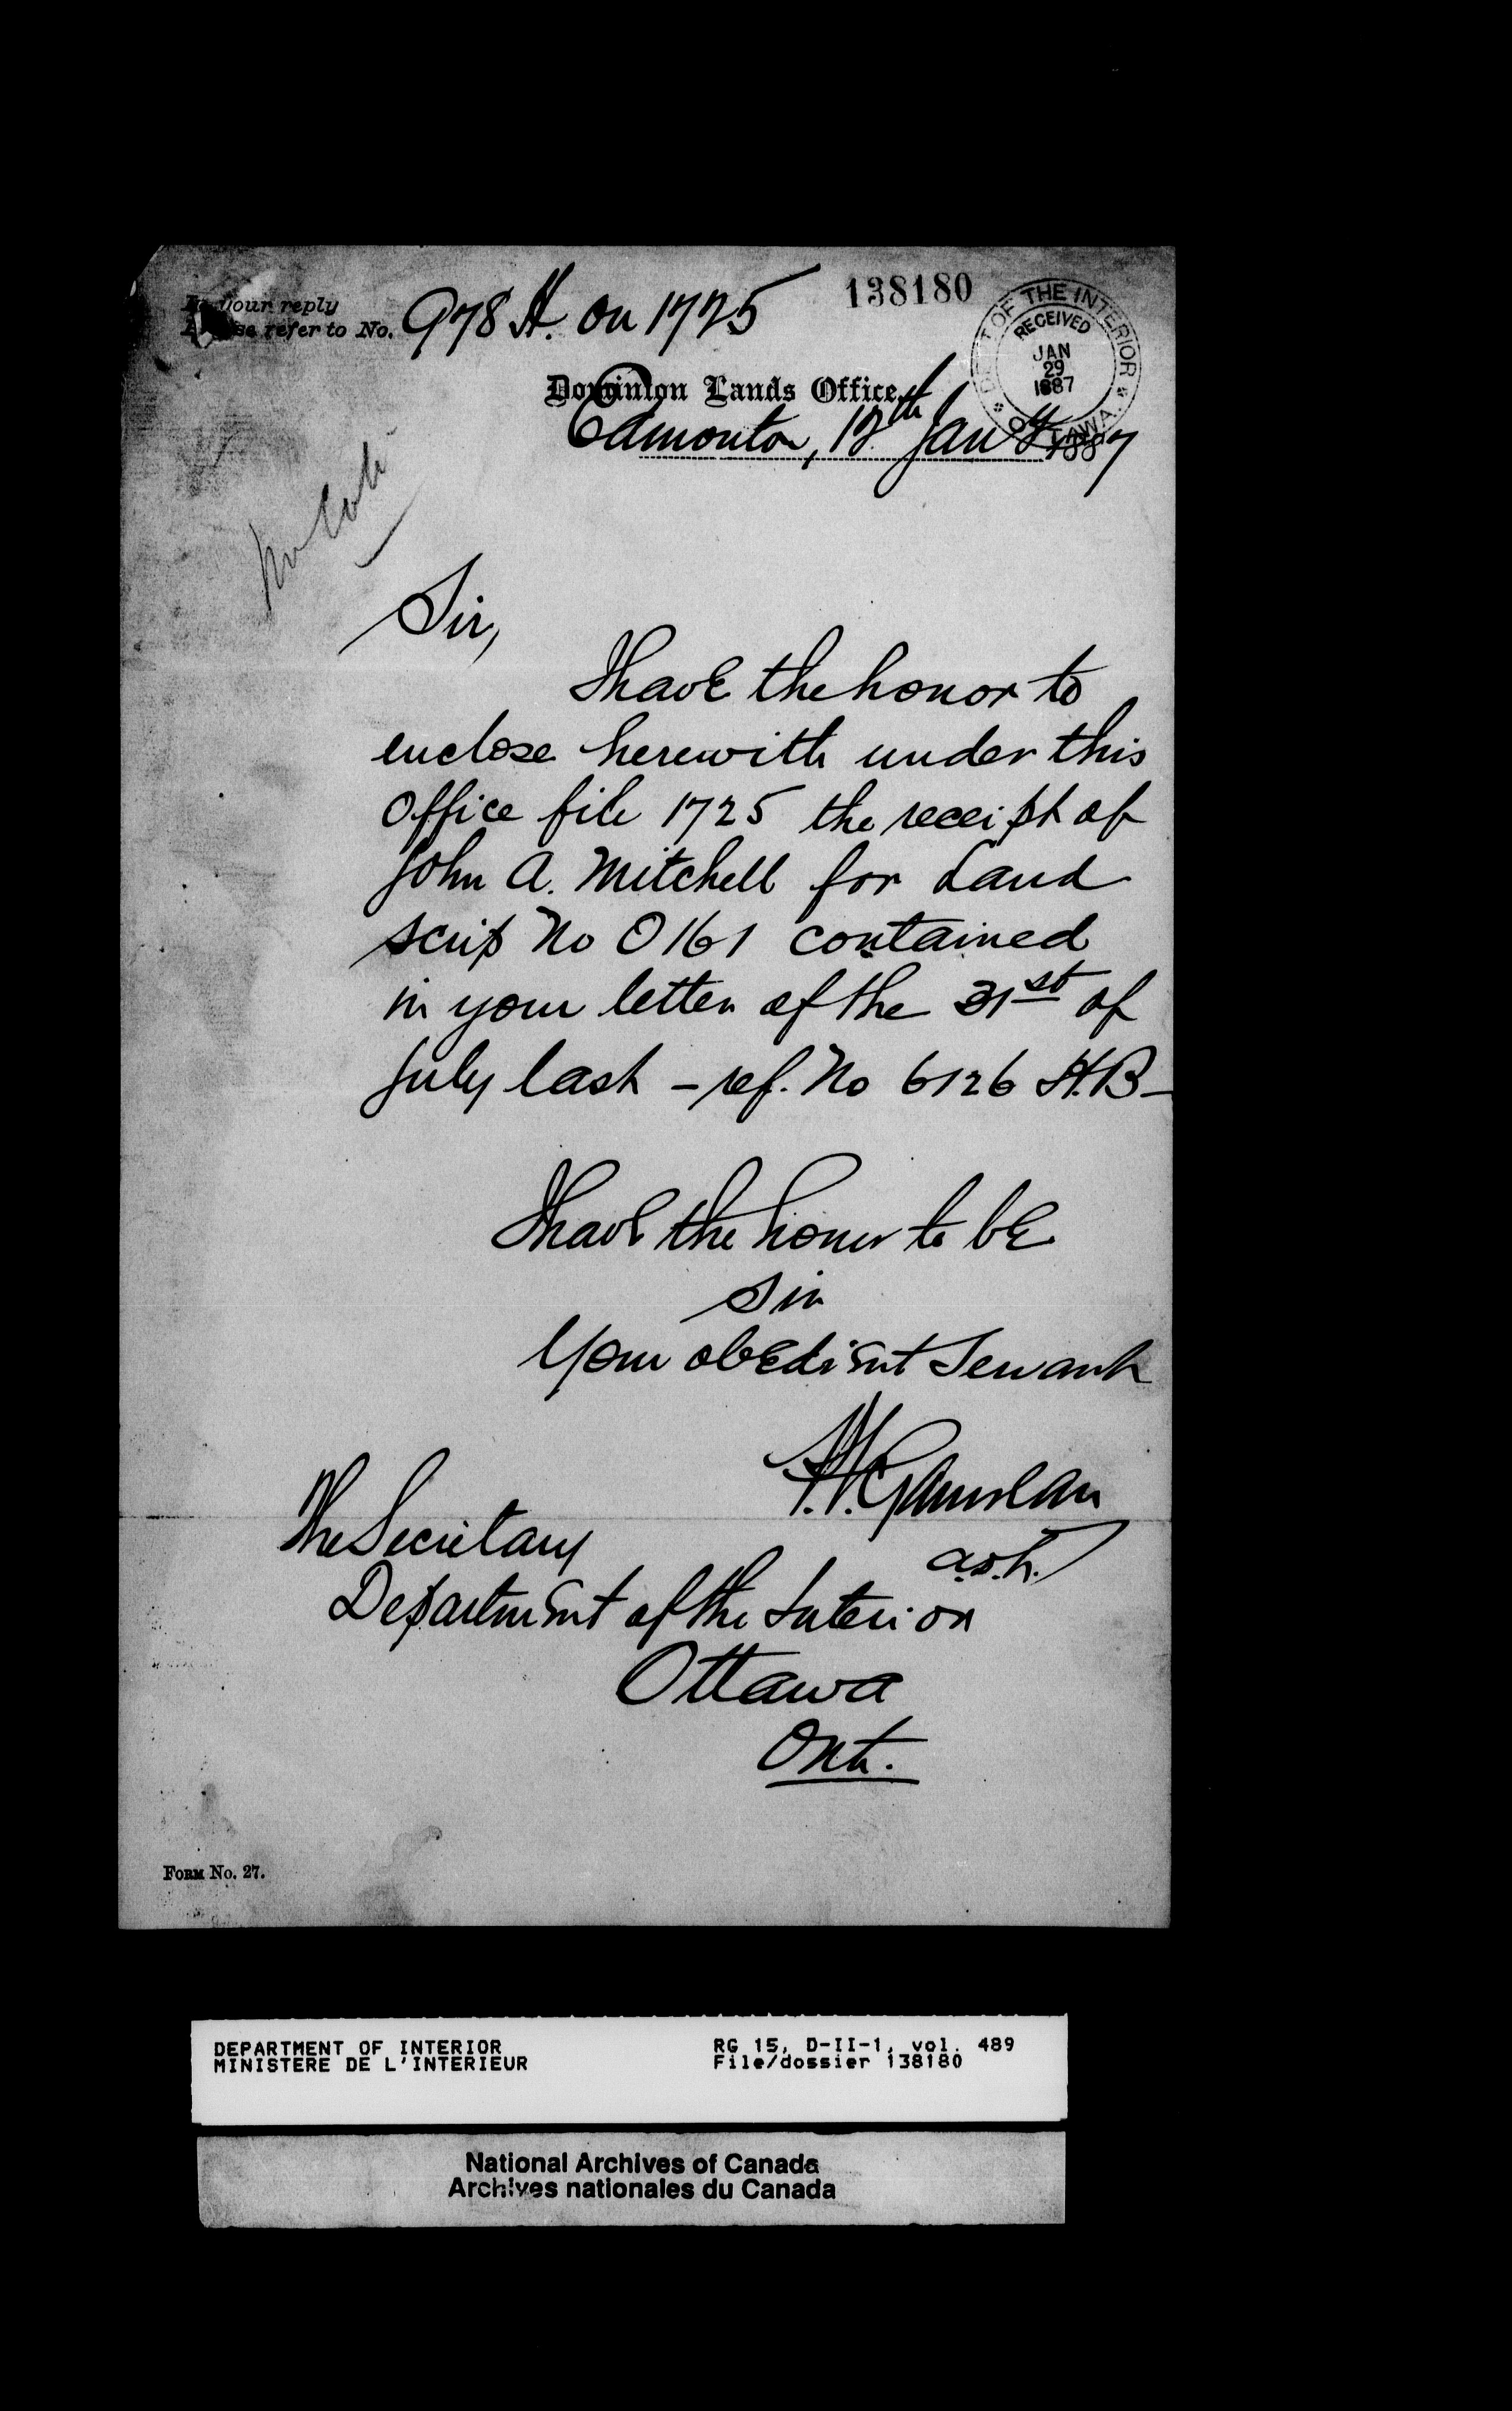 In your reply
Please refer to No. 978 H. on 1725
138180
DEPT OF THE INTERIOR
RECEIVED
JAN
29
1887
OTTAWA
Dominion Lands Office,
Edmonton, 12th Jany 1887
Sir,
I have the honor to
enclose herewith under this
Office file 1725 the receipt of
John A. Mitchell for Land
scrip No 0161 contained
in your letter of the 31st of
July last - ref. No 6126 H.B -
I have the honor to be
Sir
Your obedient Servant
The Secretary
Department of the Interior
Ottawa
Ont.
FORM No. 27.
DEPARTMENT OF INTERIOR
MINISTERE DE L'INTERIEUR
RG 15, D-II-1, vol. 489
File/dossier 138180
National Archives of Canada
Archives nationales du Canada